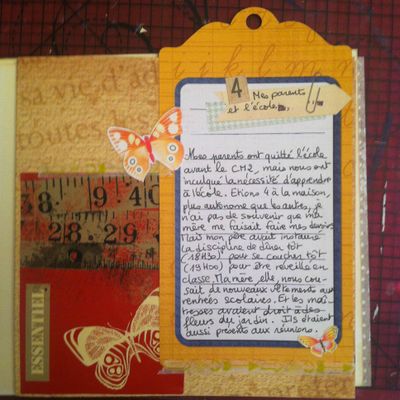 sa vie d'ad
toutes
i j k l m
4
Mes parents
et l'école...
Mes parents ont quitté l'école
avant le CM2, mais nous ont
inculqué la nécessité d'apprendre
à l'école. Etions 4 à la maison,
plus autonome que les autres, je
n'ai pas de souvenir que ma
mère me faisait faire mes devoirs
Mais mon père avait instauré
la discipline de dîner tôt
(18H30) pour se coucher tôt
(19H30) pour être réveillé en
classe. Ma mère, elle, nous cou-
sait de nouveaux vêtements aux
rentrées scolaires. Et les maî-
tresses avaient droit à des
fleurs du jardin. Ils étaient
aussi présents aux réunions.
38 9
28 29
ESSENTIEL